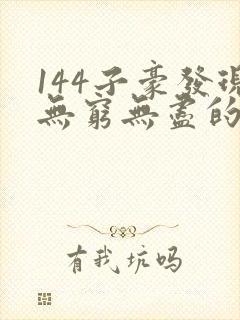 144子豪發現
無窮無盡的
有我坑吗